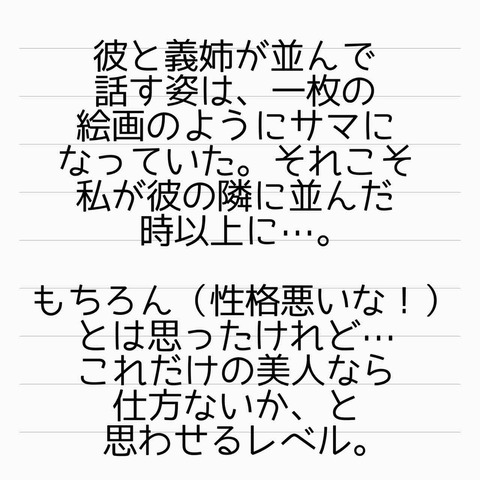 彼と義姉が並んで
話す姿は、一枚の
絵画のようにサマに
なっていた。それこそ
私が彼の隣に並んだ
時以上に…。
もちろん（性格悪いな！）
とは思ったけれど…
これだけの美人なら
仕方ないか、と
思わせるレベル。